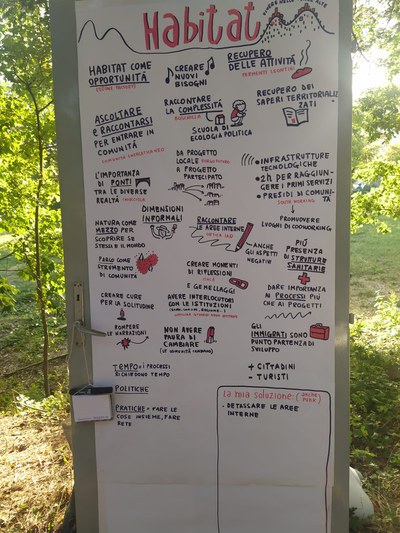 Habitat
HABITAT COME
OPPORTUNITÀ
CREARE
NUOVI
BISOGNI
RECUPERO
DELLE ATTIVITÀ
ASCOLTARE
e RACCONTARSI
PER ENTRARE IN
COMUNITÀ
RACCONTARE
LA COMPLESSITÀ
SCUOLA DI
ECOLOGIA POLITICA
RECUPERO DEI
SAPERI TERRITORIALIZ
ZATI
L'IMPORTANZA
DI PONTI
TRA LE DIVERSE
REALTÀ
DA PROGETTO
LOCALE
A PROGETTO
PARTECIPATO
INFRASTRUTTURE
TECNOLOGICHE
2h PER RAGGIUN-
GERE I PRIMI SERVIZI
PRESIDI DI COMUNI-
TÀ
PROMUOVERE
LUOGHI DI COOWORKING
DIMENSIONI
INFORMALI
NATURA COME
MEZZO PER
SCOPRIRE SE
STESSI E IL MONDO
RACCONTARE
LE AREE INTERNE
ANCHE
GLI ASPETTI
NEGATIVI
PIÙ
PRESENZA
DI STRUTTURE
SANITARIE
COME
STRUMENTO
DI COMUNITÀ
CREARE MOMENTI
DI RIFLESSIONI
E GEMELLAGGI
DARE IMPORTANZA
AI PROCESSI PIÙ
CHE AI PROGETTI
CREARE CURE
PER LA SOLITUDINE
AVERE INTERLOCUTORI
CON LE ISTITUZIONI
ROMPERE
LE NARRAZIONI
NON AVERE
PAURA DI
CAMBIARE
(LE COMUNITÀ CAMBIANO)
GLI
IMMIGRATI SONO
PUNTO PARTENZA DI
SVILUPPO
TEMPO = I PROCESSI
RICHIEDONO TEMPO
+ CITTADINI
- TURISTI
POLITICHE
PRATICHE = FARE LE
COSE INSIEME, FARE
RETE
La mia soluzione:
- DETASSARE LE AREE
INTERNE